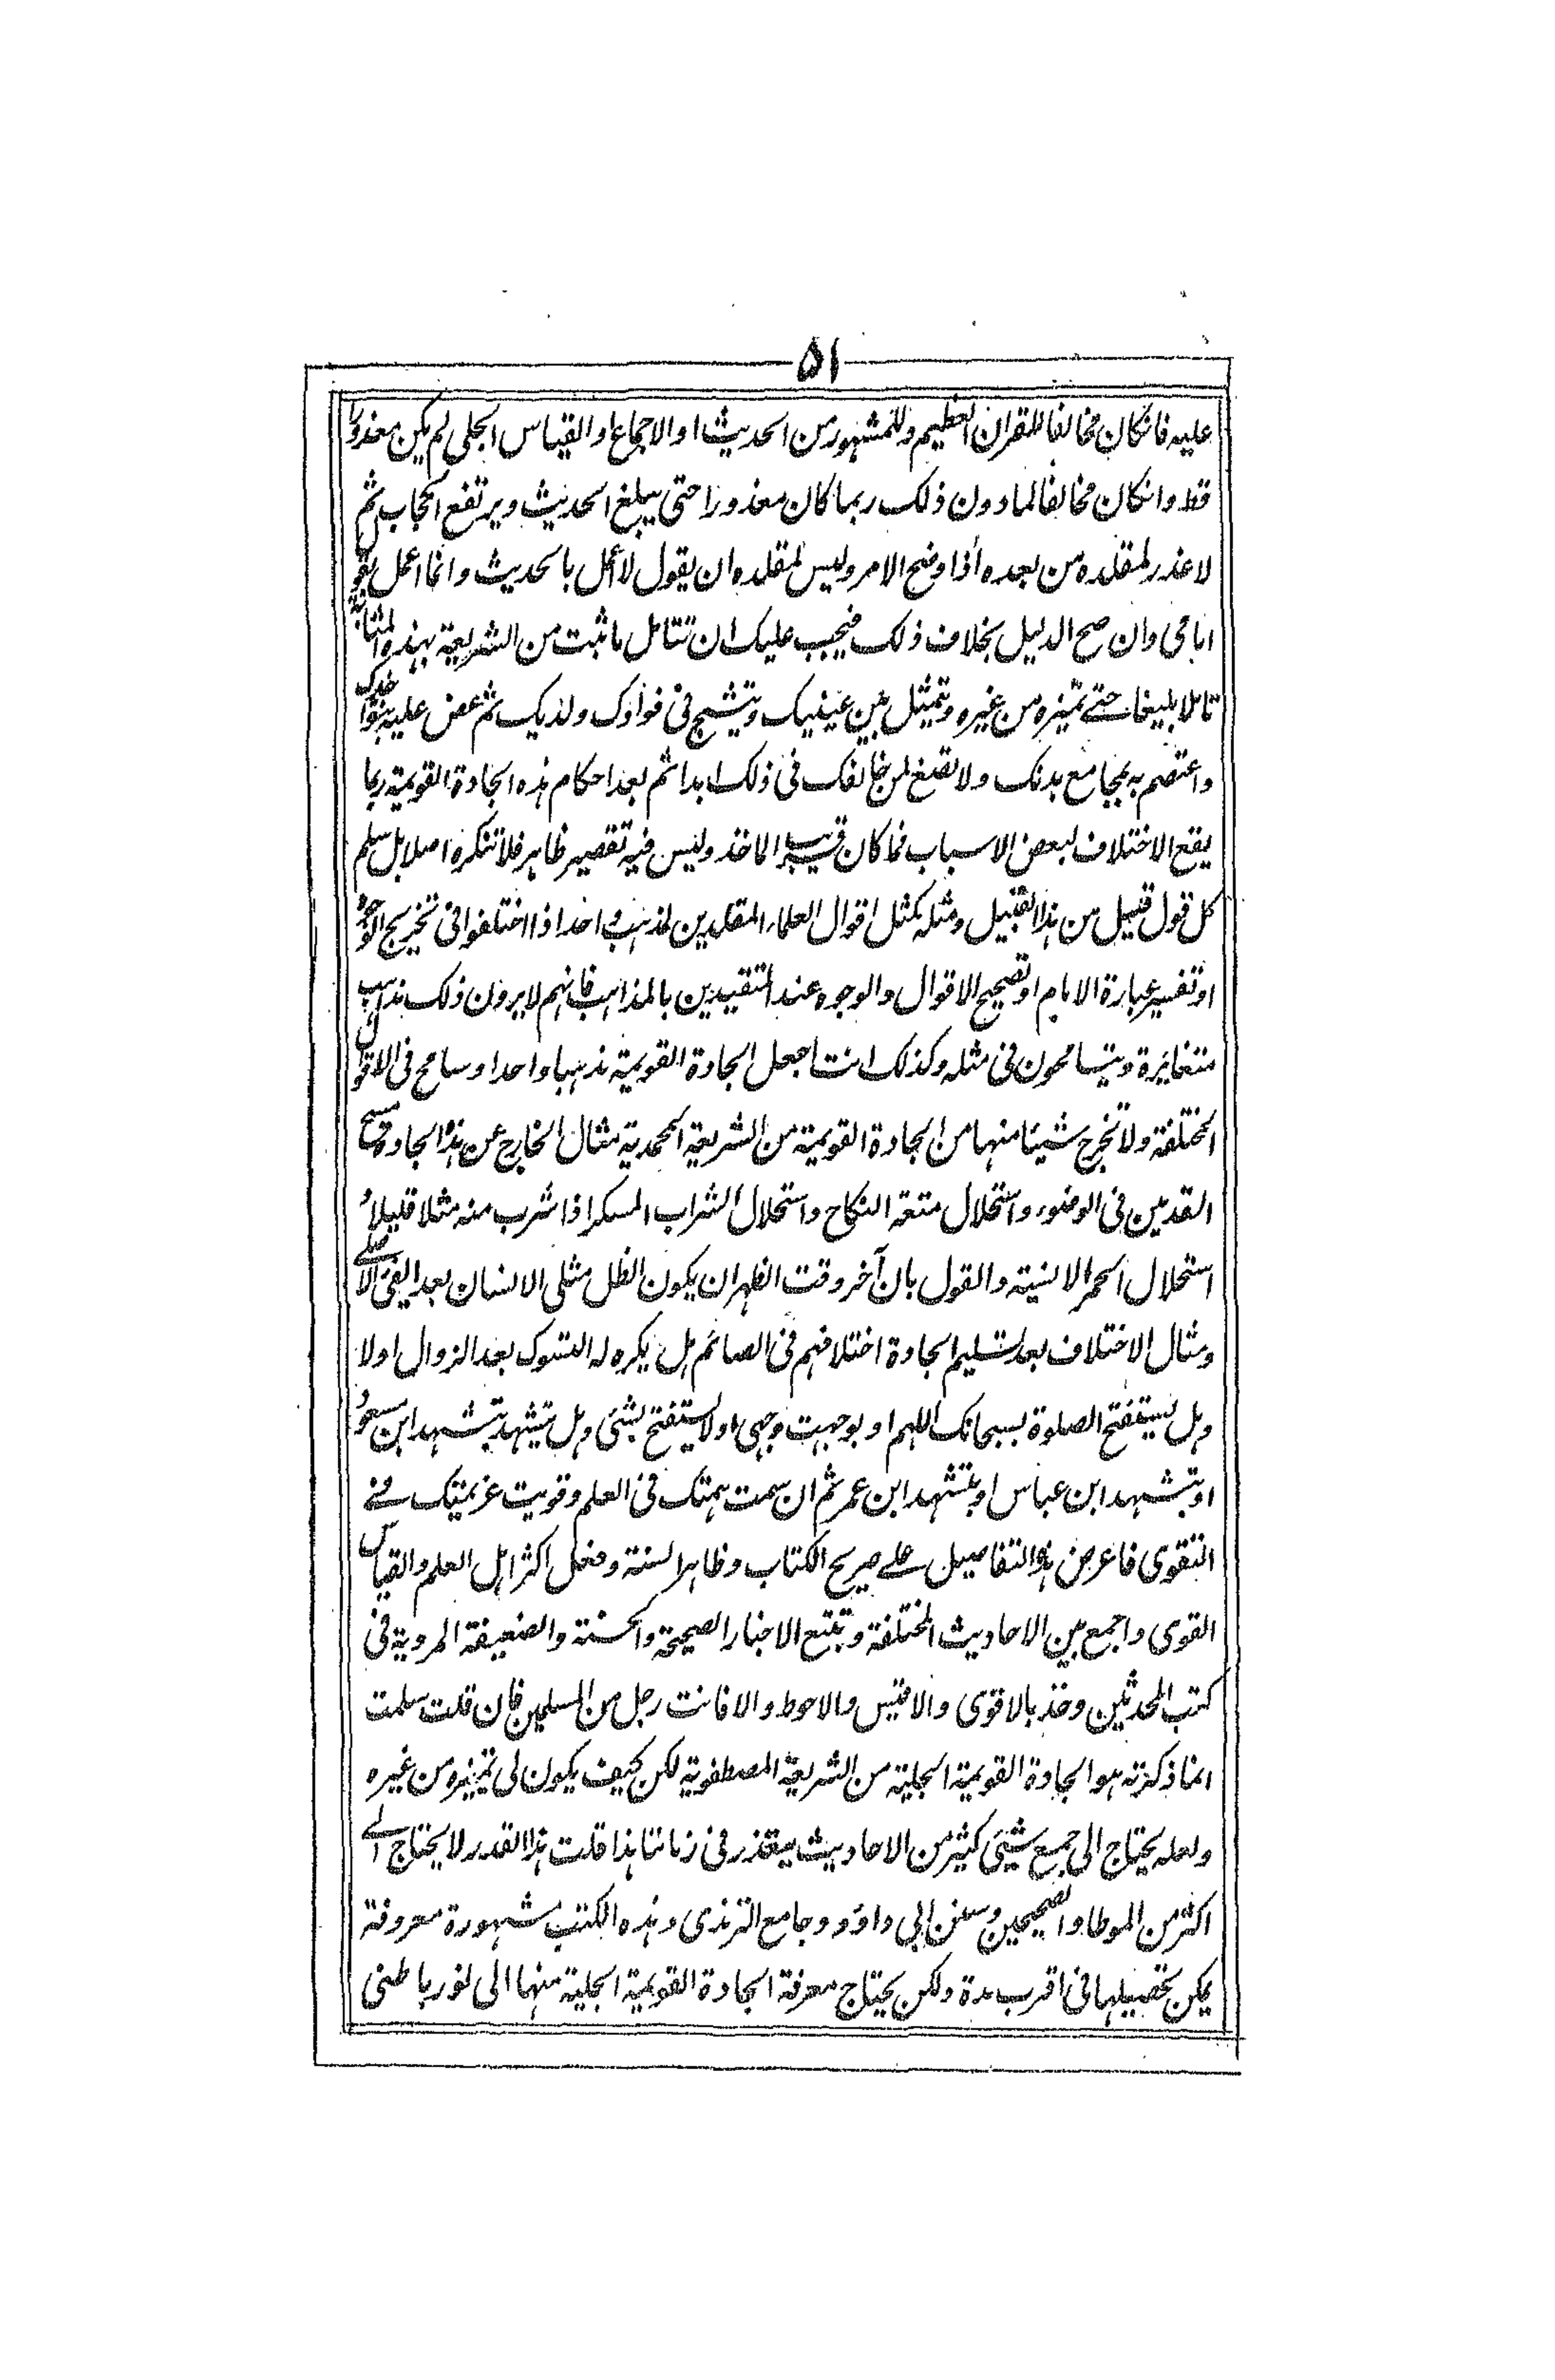 ۵۱
عليه فانكان مخالفا للقران العظيم وللمشهور من الحديث او الاجماع او القياس الجلى لم يكن معذورا
قط وانكان مخالفا لما دون ذلك ربما كان معذورا حتى يبلغ الحديث ويرتفع الحجاب ثم
لا عذر لمقلده من بعده اذا وضح الامر وليس لمقلده ان يقول لا اعمل بالحديث وانما اعمل بقول
امامى وان صح الدليل بخلاف ذلك فيجب عليك ان تتامل ما ثبت من الشريعة بهذه المثابة
تاملا بليغا حتى تميزه من غيره وتمثيل بين عينيك ويتشبح فى فوادك ولديك ثم عض عليه بنواجذك
واعتصم به بمجامع يدنك ولا تصغ لمن خالفك فى ذلك ابدا ثم بعد احكام هذه الجادة القويمة ربما
يقع الاختلاف لبعض الاسباب فما كان قريب الماخذ وليس فيه تقصير ظاهر فلا تنكره اصلا بل سلم
كل قول قيل من هذا القبيل ومثله كمثل اقوال العلماء المقلدين لمذهب واحد اذا اختلفوا فى تخريج الوجوه
او تفسير عبارة الامام او تصحيح الاقوال والوجوه عند المتقيدين بالمذاهب فانهم لا يرون ذلك مذاهب
متغايرة ويتسامحون فى مثله وكذلك انت اجعل الجادة القويمة مذهبا واحدا وسامح فى الاقوال
المختلفة ولا تخرج شيئا منها من الجادة القويمة من الشريعة المحمدية مثال الخارج عن هذه الجادة مسح
القدمين فى الوضوء واستحلال متعة النكاح واستحلال الشراب المسكر اذا شرب منه مثلا قليلا و
استحلال الحمر الانسية والقول بان آخر وقت الظهر ان يكون الظل مثلى الانسان بعد الفئ الاصلى
ومثال الاختلاف بعد تسليم الجادة اختلافهم فى الصائم هل يكره له التسوك بعد الزوال اولا
وهل يستفتح الصلوة بسبحانك اللهم او بوجهت وجهى او لا يستفتح بشئ وهل يتشهد بتشهد ابن مسعود
او بتشهد ابن عباس او بتشهد ابن عمر ثم ان سمت همتك فى العلم وقويت عزيمتك فى
التقوى فاعرض هذه التفاصيل على صريح الكتاب وظاهر السنة وفعل اكثر اهل العلم والقياس
القوى واجمع بين الاحاديث المختلفة وتتبع الاخبار الصحيحة والحسنة والضعيفة المروية فى
كتب المحدثين وخذ بالاقوى والاقيس والاحوط والا فانت رجل من المسلمين فان قلت سلمت
انما ذكرته هو الجادة القويمة الجلية من الشريعة المصطفوية لكن كيف يكون لى تمييزه من غيره
ولعله يحتاج الى جمع شيئ كثير من الاحاديث يتعذر فى زماننا هذا قلت هذا القدر لا يحتاج الى
اكثر من الموطا والصحيحين وسنن ابى داود وجامع الترمذى وهذه الكتب مشهورة معروفة
يمكن تحصيلها فى اقرب مدة ولكن يحتاج معرفة الجادة القويمة الجلية منها الى نور باطنى